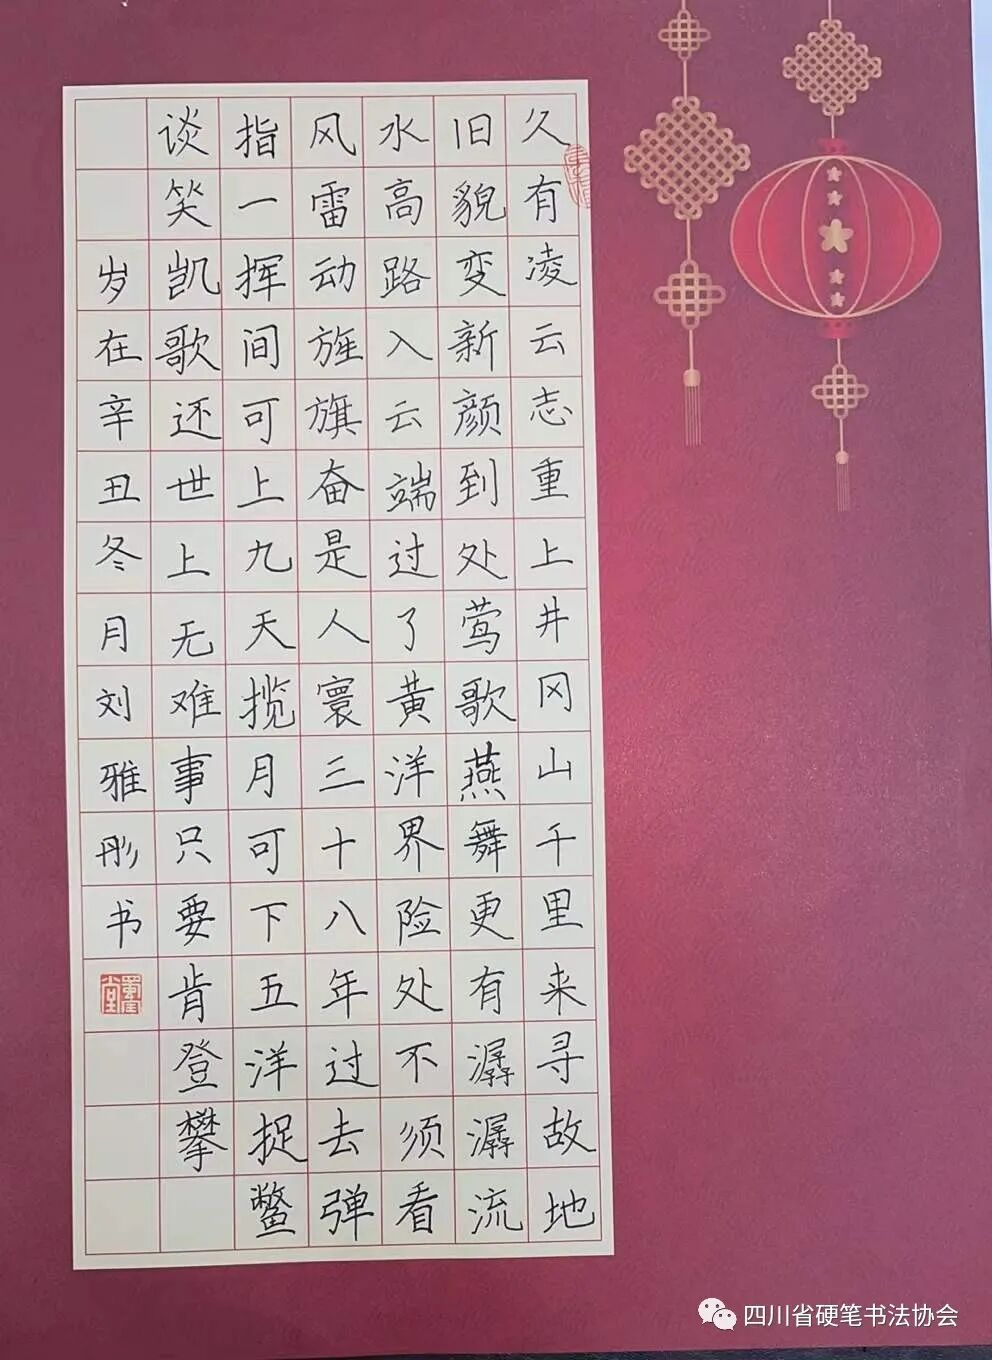 久有凌云志重上井冈山千里来寻故地
旧貌变新颜到处莺歌燕舞更有潺潺流
水高路入云端过了黄洋界险处不须看
风雷动旌旗奋是人寰三十八年过去弹
指一挥间可上九天揽月可下五洋捉鳖
谈笑凯歌还世上无难事只要肯登攀
岁在辛丑冬月刘雅彤书
四川省硬笔书法协会